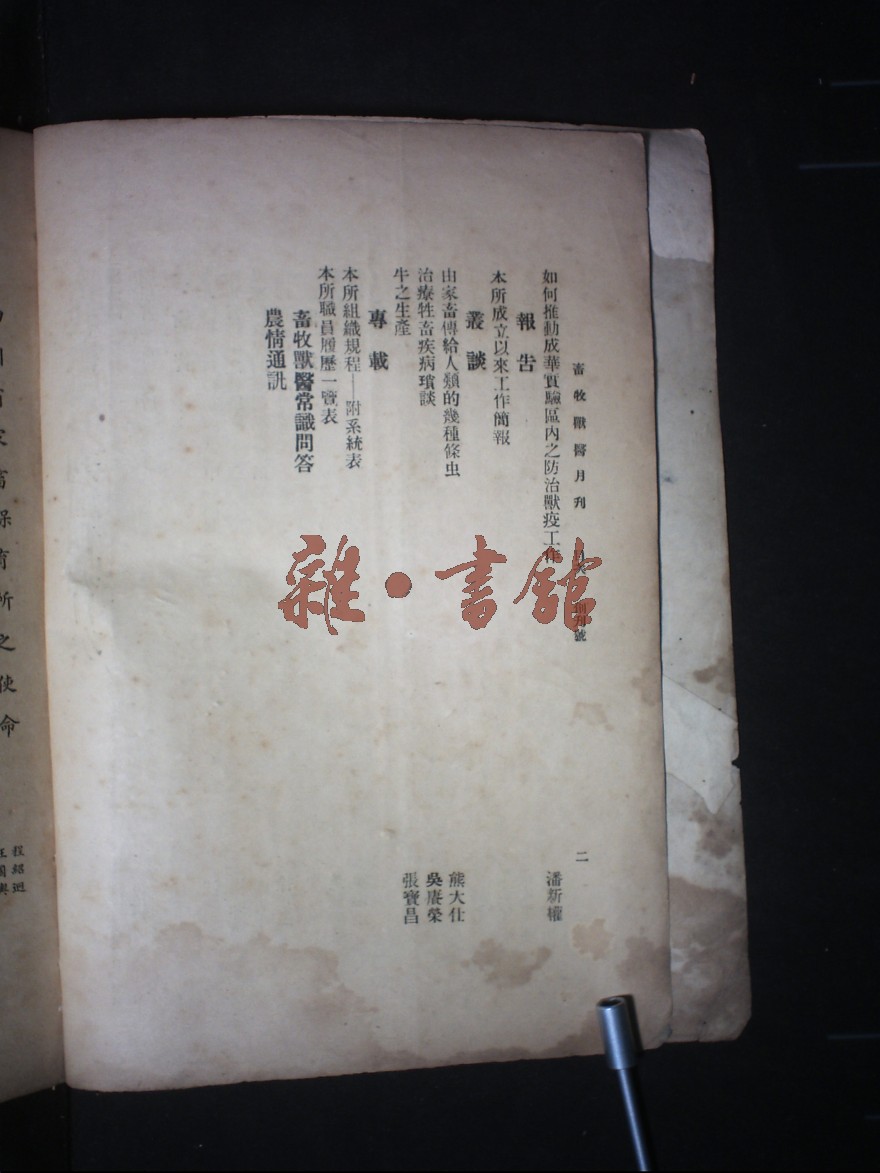 畜牧獸醫月刊 創刊號 二
如何推動成華實驗區內之防治獸疫工作 潘新權
報告
本所成立以來工作簡報
叢談
由家畜傳給人類的幾種條虫 熊大仕
治療牲畜疾病瑣談 吳庚榮
牛之生產 張寶昌
專載
本所組織規程——附系統表
本所職員履歷一覽表
畜牧獸醫常識問答
農情通訊
家畜保育所之使命
程紹迥
雜·書館